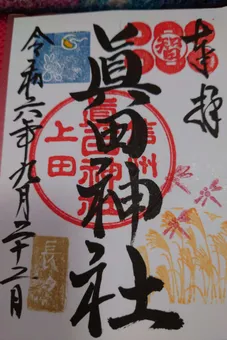 奉拝
眞田神社
信州
眞田神社
上田
令和六年九月二十二日